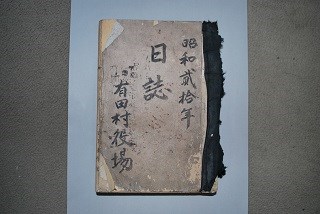 昭和貮拾年
日誌
有田村役場